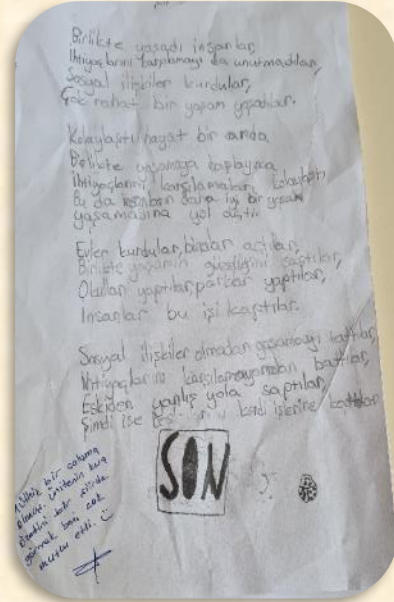 Birlikte yaşadı insanlar,
İhtiyaçlarını karşılamayı da unutmadılar,
Sosyal ilişkiler kurdular,
Çok rahat bir yaşam yaşadılar.
Kolaylaştı hayat bir anda,
Birlikte yaşamaya başlayınca
İhtiyaçlarını karşılamaları kolaylaştı,
Bu da daha iyi bir yaşam
yaşamasına yol açtı.
Evler kurdular, binalar açtılar,
Birlikte yaşamın güzelliğini saçtılar,
Okullar yaptılar, parklar yaptılar,
İnsanlar bu işi kaptılar.
Sosyal ilişkiler olmadan yaşamayı tattılar,
İhtiyaçlarını karşılamayarak battılar,
Eskiden yanlış yola saptılar,
Şimdi ise kendi işlerine
SON
bir çalışma
olmuş. Ünitenin kısa
özetini bir şiirde
görmek beni çok
mutlu etti.